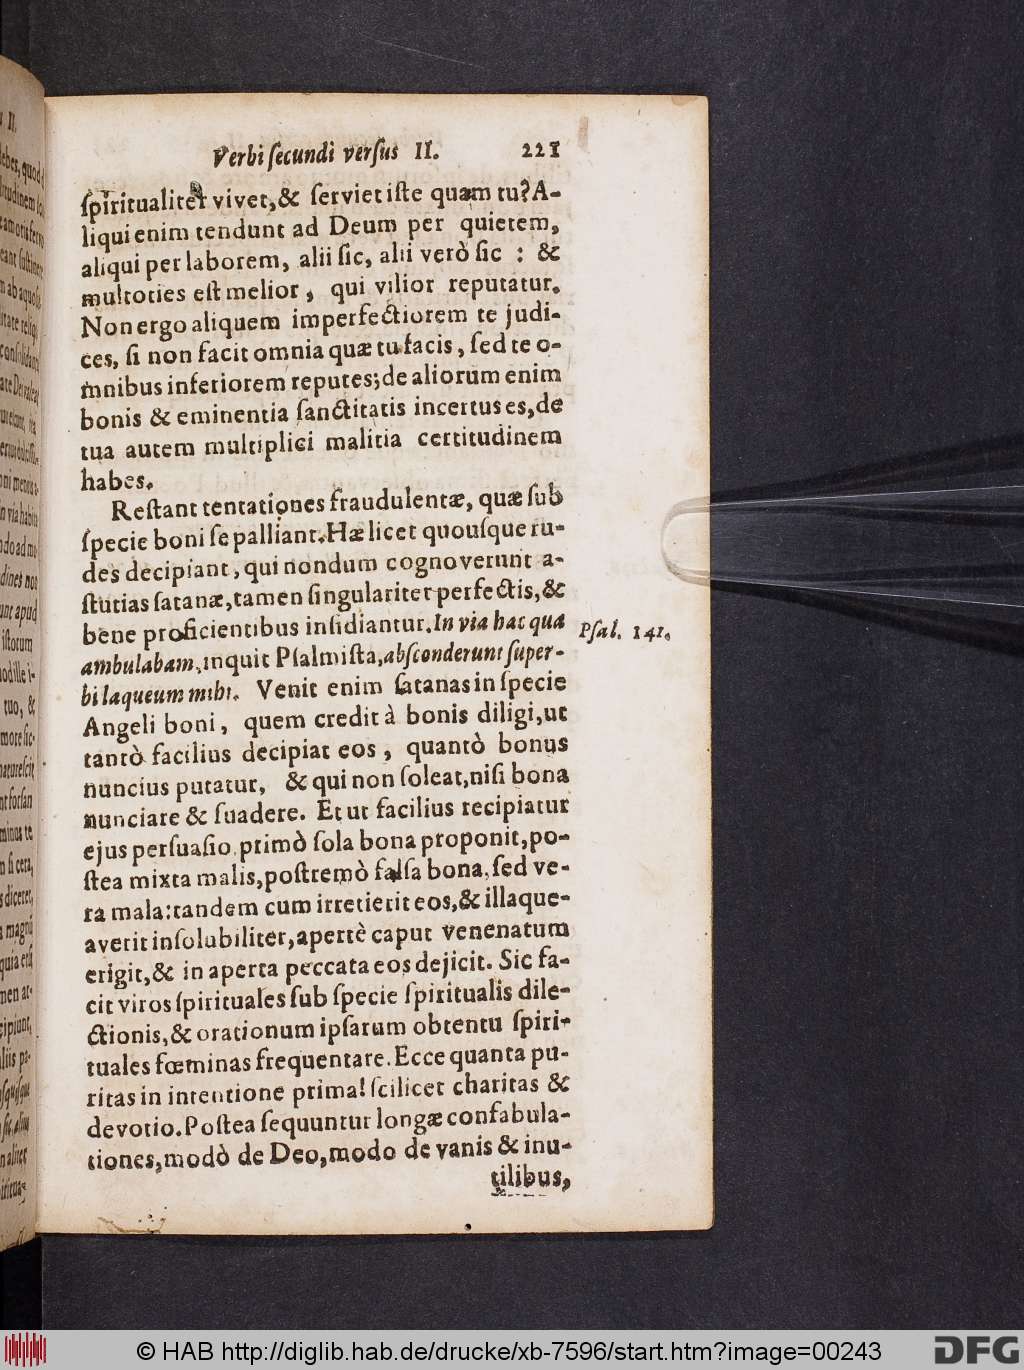 Verbi ſecundi verſus II. 221
ſpiritualiter vivet, & ſerviet iſte quam tu? A-
liqui enim tendunt ad Deum per quietem,
aliqui per laborem, alii ſic, alii verò ſic : &
multoties eſt melior, qui vilior reputatur.
Non ergo aliquem imperfectiorem te judi-
ces, ſi non facit omnia quæ tu facis, ſed te o-
mnibus inferiorem reputes; de aliorum enim
bonis & eminentia ſanctitatis incertus es, de
tua autem multiplici malitia certitudinem
habes.
Reſtant tentationes fraudulentæ, quæ ſub
ſpecie boni ſe palliant. Hæ licet quouſque ru-
des decipiant, qui nondum cognoverunt a-
ſtutias ſatanæ, tamen ſingulariter perfectis, &
bene proficientibus inſidiantur. In via hac qua
Pſal. 141.
ambulabam, inquit Pſalmiſta, abſconderunt ſuper-
bi laqueum mihi. Venit enim ſatanas in ſpecie
Angeli boni, quem credit à bonis diligi, ut
tantò facilius decipiat eos, quantò bonus
nuncius putatur, & qui non ſoleat, niſi bona
nunciare & ſuadere. Et ut facilius recipiatur
ejus perſuaſio primò ſola bona proponit, po-
ſtea mixta malis, poſtremò falſa bona, ſed ve-
ra mala: tandem cum irretierit eos, & illaque-
averit inſolubiliter, apertè caput venenatum
erigit, & in aperta peccata eos dejicit. Sic fa-
cit viros ſpirituales ſub ſpecie ſpiritualis dile-
ctionis, & orationum ipſarum obtentu ſpiri-
tuales fœminas frequentare. Ecce quanta pu-
ritas in intentione prima! ſcilicet charitas &
devotio. Poſtea ſequuntur longæ confabula-
tiones, modò de Deo, modo de vanis & inu-
tilibus,
© HAB http://diglib.hab.de/drucke/xb-7596/start.htm?image=00243
DFG